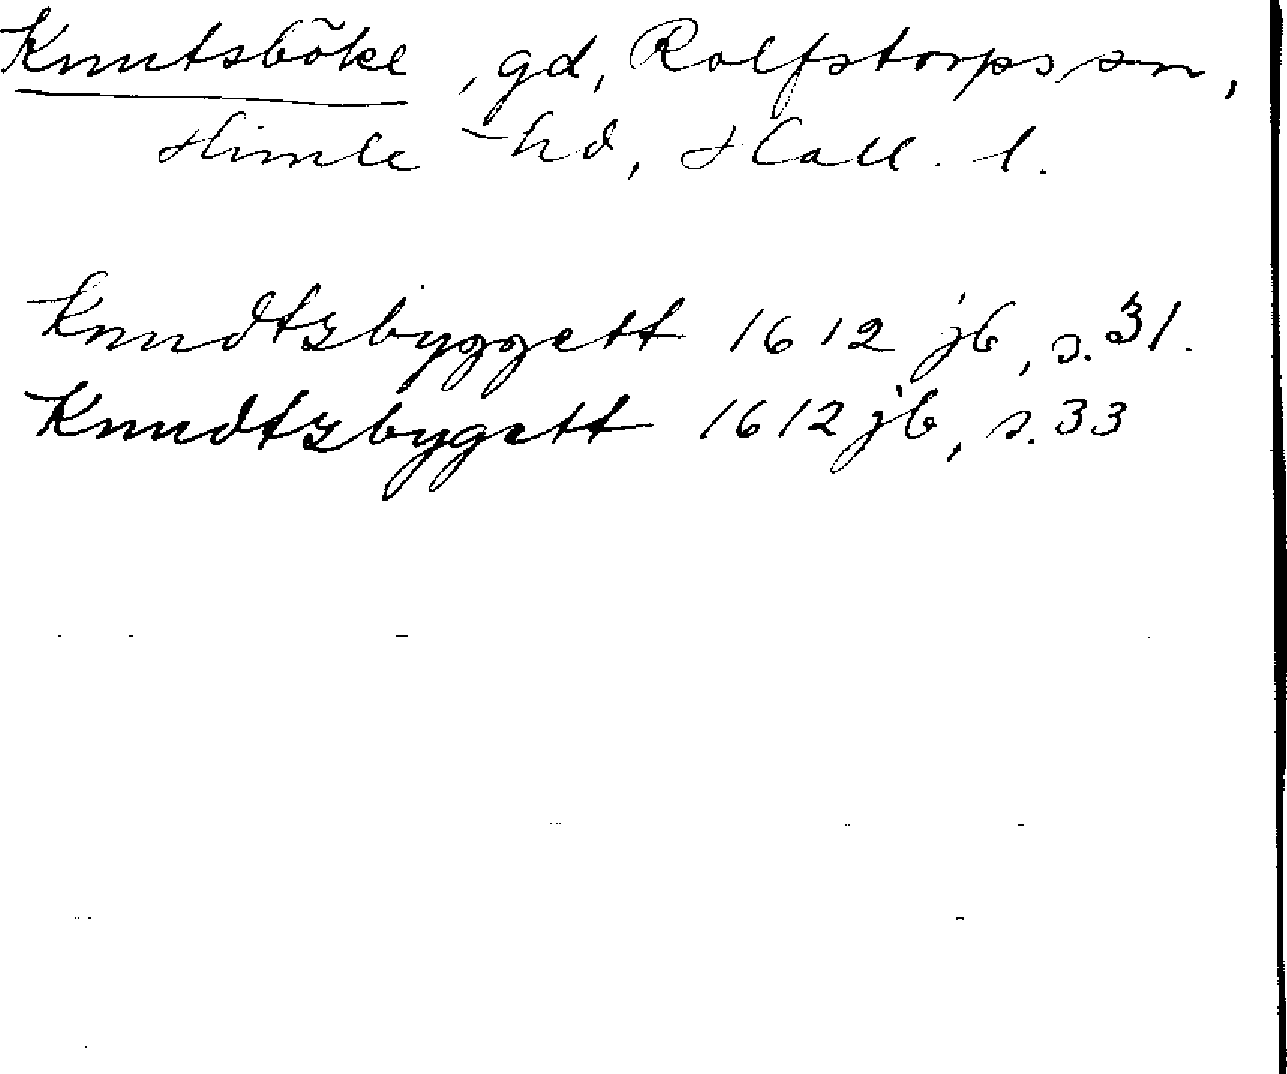 Knutsböke, gd, Rolfstorps sn,
Himle hd, Hall. l.
Knudtzbyggett 1612 jb, s. 31.
Knudtzbygett 1612 jb, s. 33